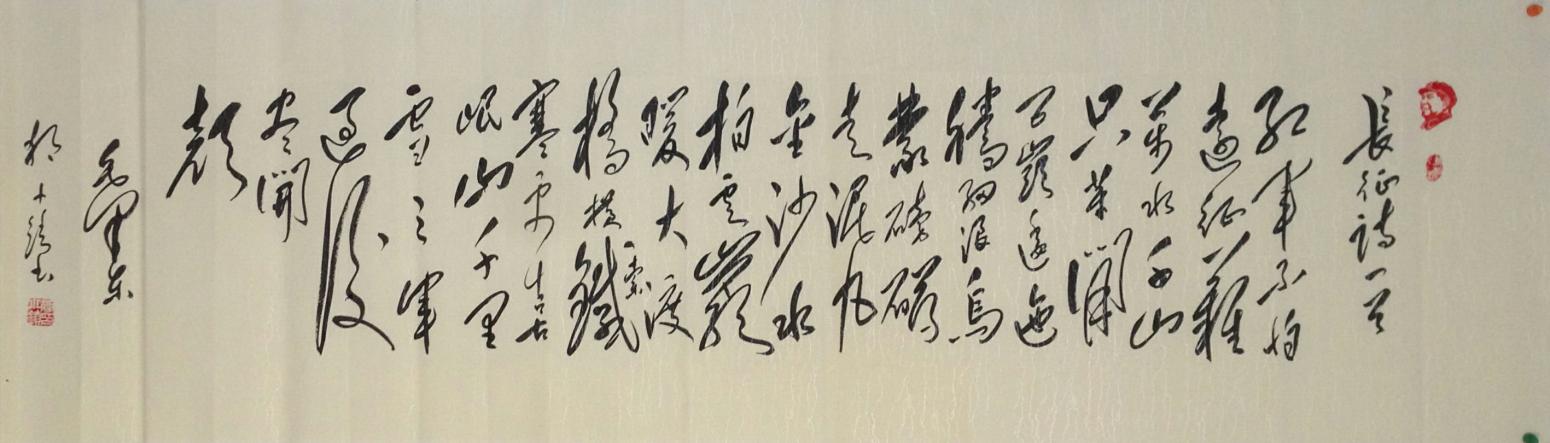 長征詩一首
紅軍不怕
遠征難
萬水千山
只等閒
五嶺逶迤
騰細浪烏
蒙磅礴
走泥丸
金沙水
拍雲巖
暖大渡
橋橫鐵索
寒更喜
岷山千里
雪三軍
過後
盡開
顏
毛澤東
書